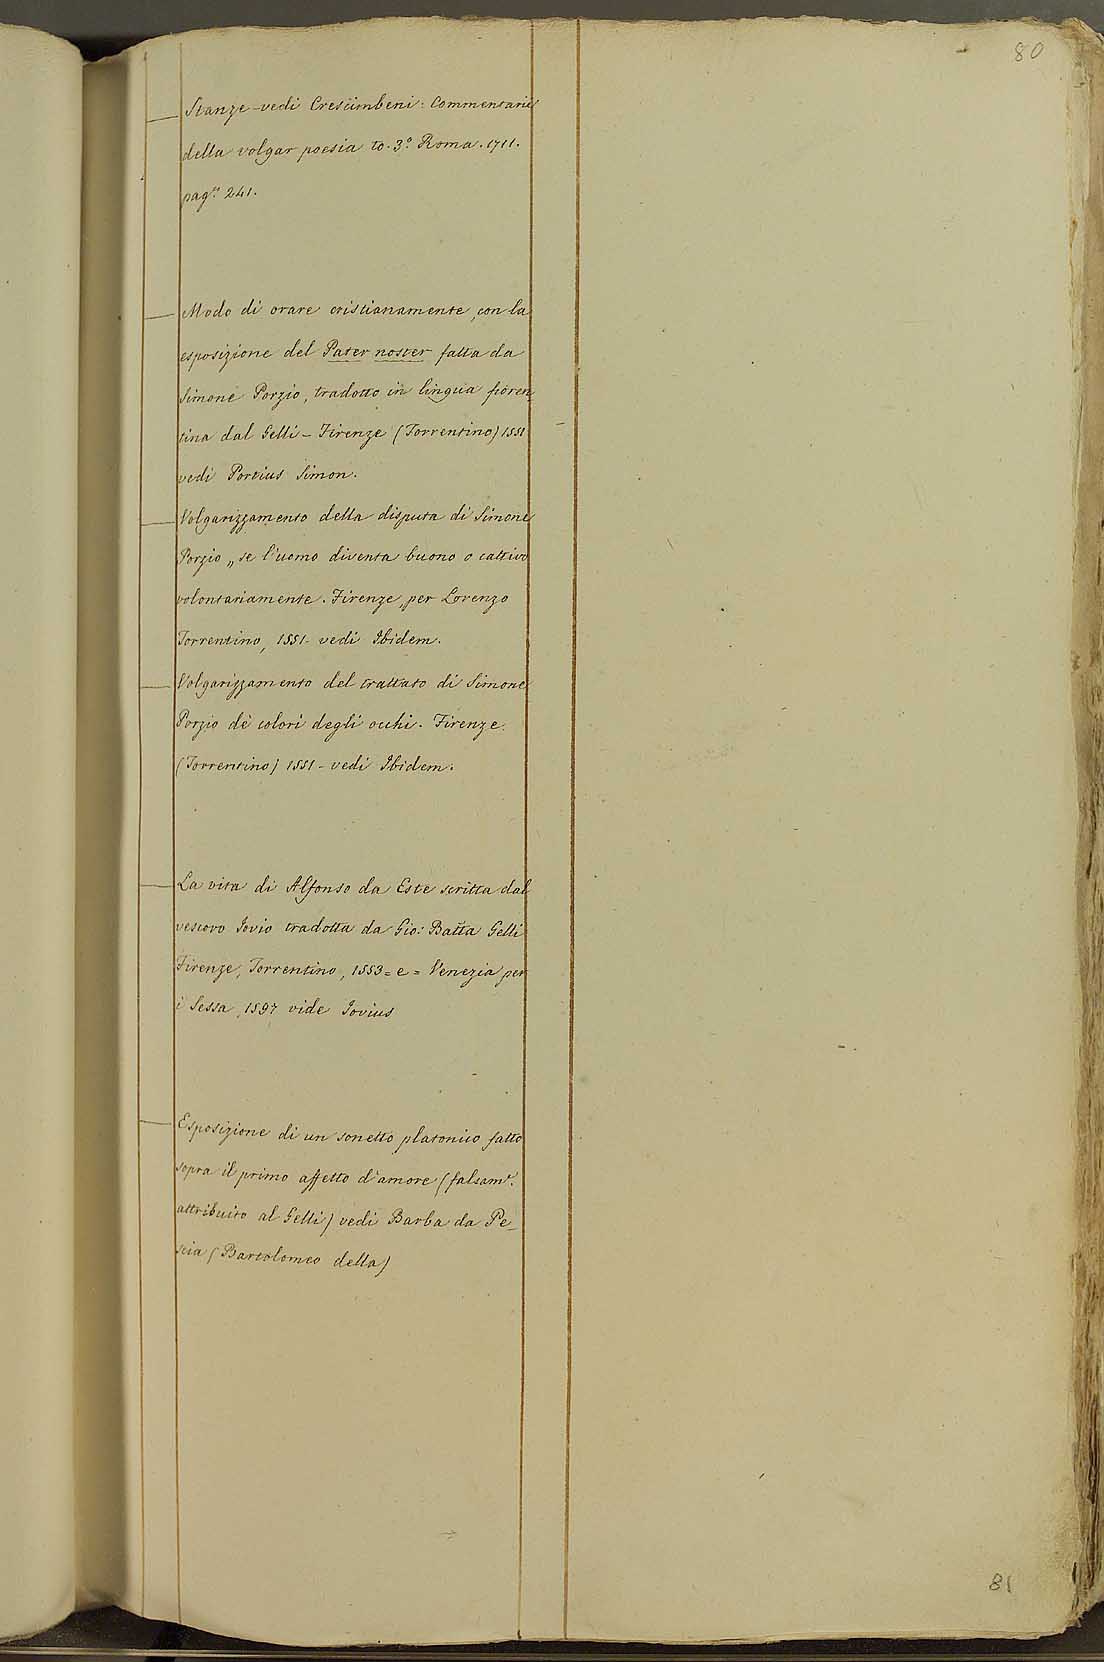 80
Stanze - vedi Crescimbeni: Commentarii
della volgar poesia to. 3.º Roma. 1711.
pag.ª 241.
Modo di orare cristianamente, con la
esposizione del Pater noster fatta da
Simone Porzio, tradotto in lingua fioren
tina dal Gelli - Firenze (Torrentino) 1551
vedi Portius Simon.
Volgarizzamento della disputa di Simone
Porzio „ se l'uomo diventa buono o cattivo
volontariamente. Firenze, per Lorenzo
Torrentino, 1551 - vedi Ibidem.
Volgarizzamento del trattato di Simone
Porzio de' colori degli occhi. Firenze
(Torrentino) 1551 - vedi Ibidem.
La vita di Alfonso da Este scritta dal
vescovo Jovio tradotta da Gio: Batta Gelli
Firenze, Torrentino, 1553 = e = Venezia per
i Sessa, 1597 vide Jovius
Esposizione di un sonetto platonico fatto
sopra il primo affetto d'amore (falsam.e
attribuito al Gelli) vedi Barba da Pe_
scia (Bartolomeo della)
81